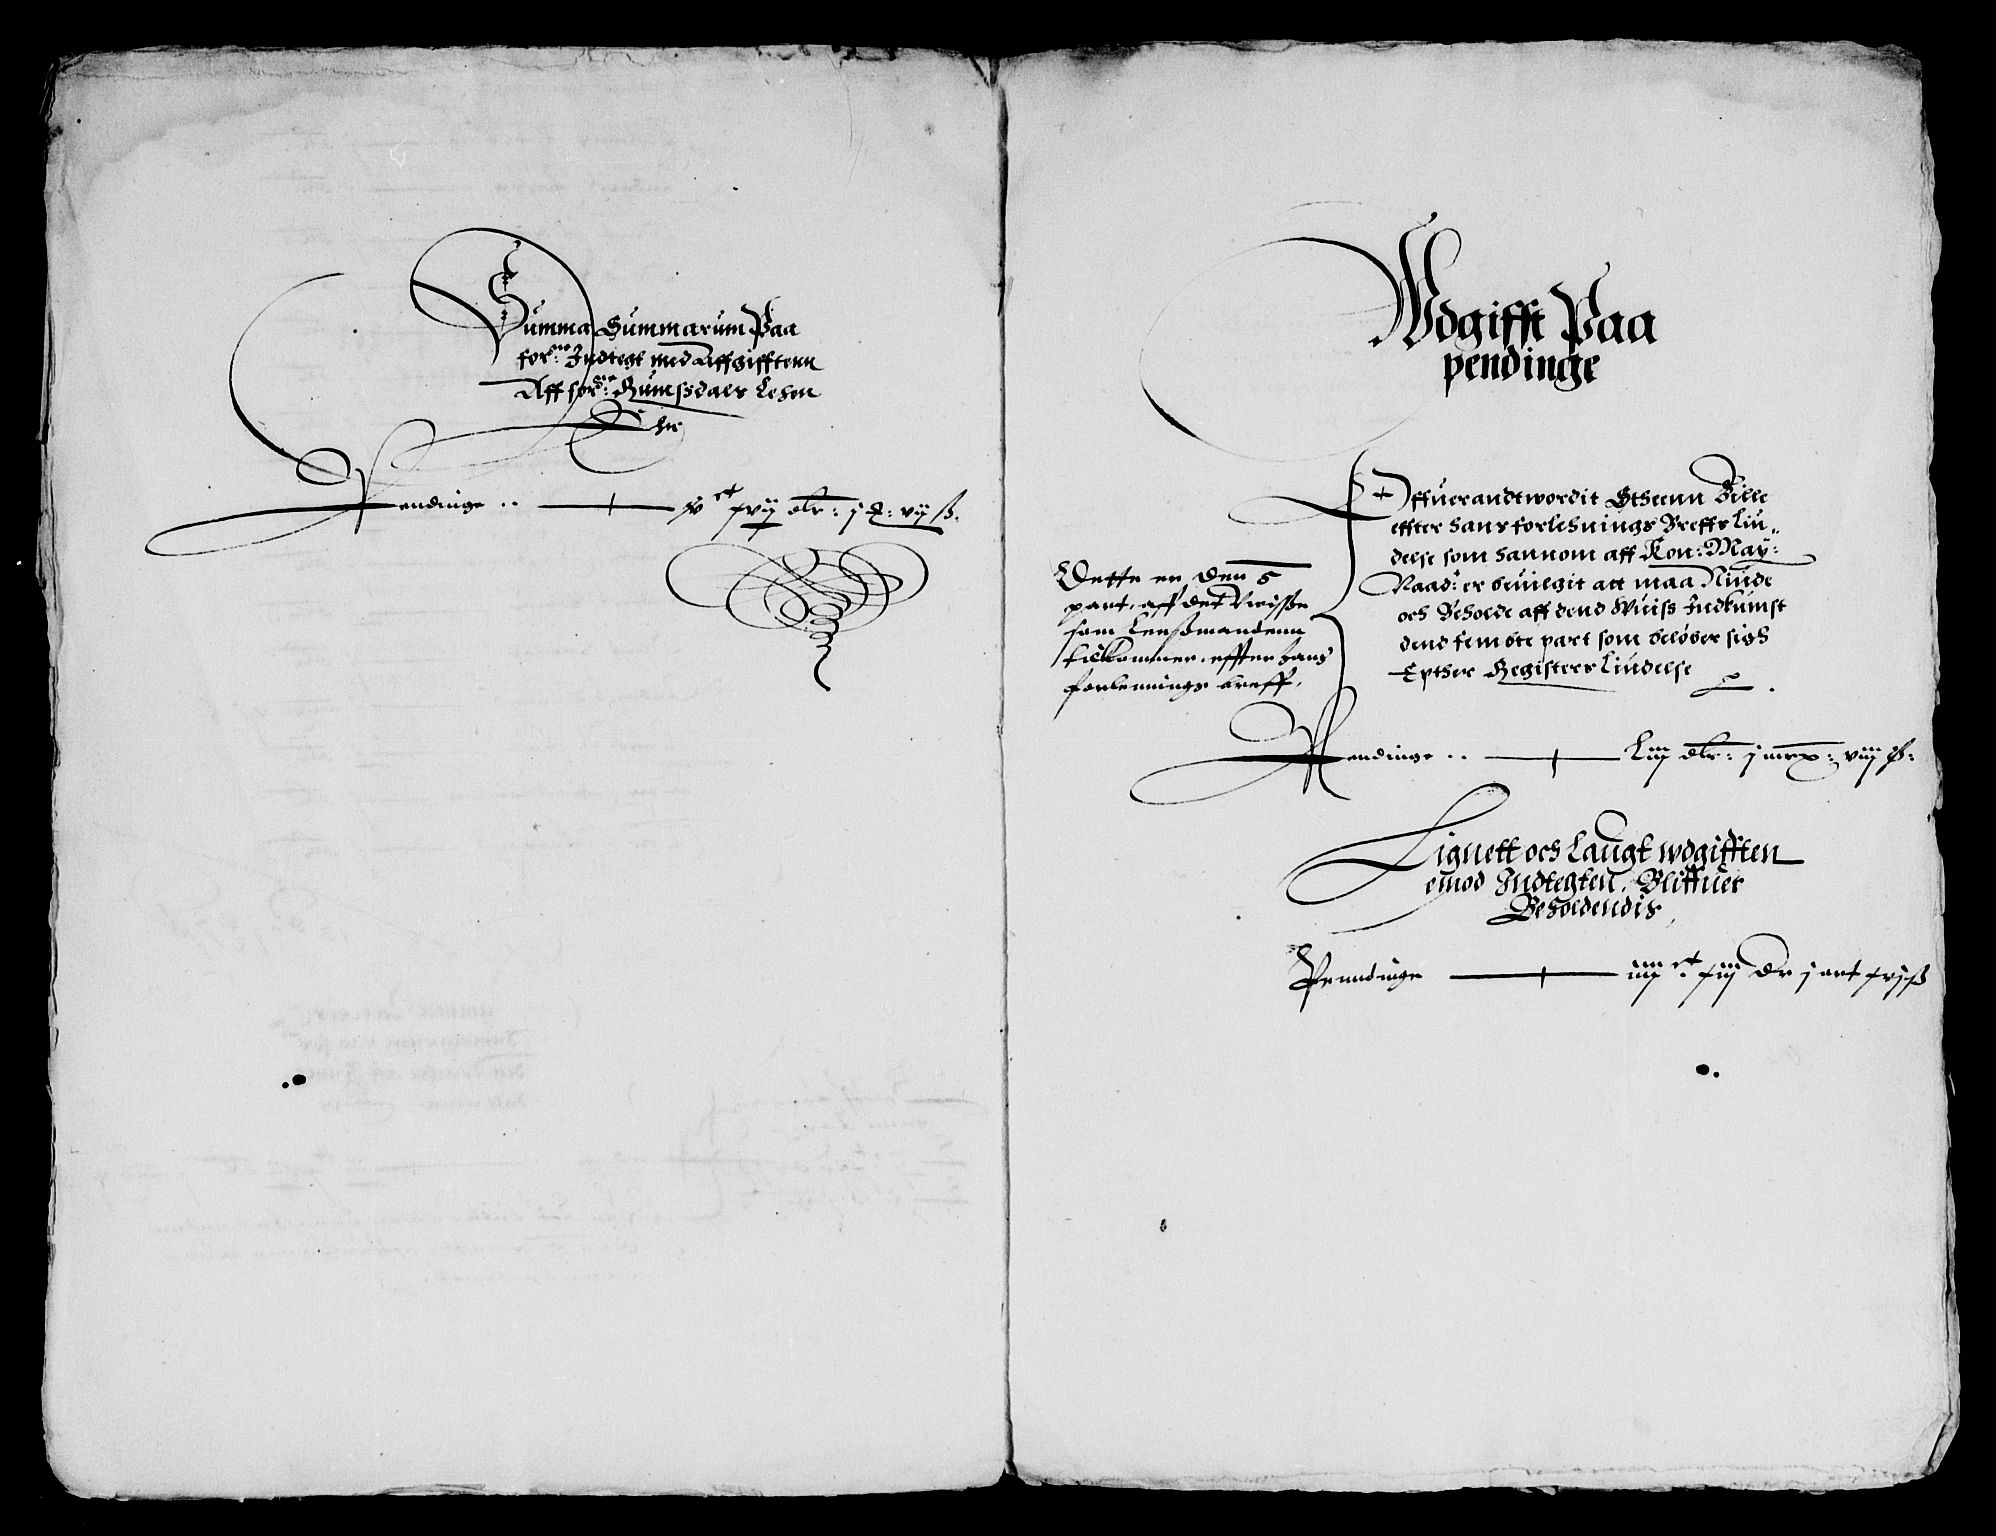 Summa Summarum Paa
for:ne Indtegt med Affgifftenn
Aff for:ne Rumssdals Lehn
Er
Pendinge .. v ct xvij dlr: j ℥: vij ß.
Wdgifft Paa
pendinge
Offuerandtwordit Stheenn Bille
effter hans forlehnings Breffs liu„
delse som hannom aff Kon: May:
Naad: er beuilgit att maa Niude
och Beholde aff dend Wuiss Indkumst
dend femбte part som beløber sigh
Epther Registers liudelse
Dette er den 5
part, aff det Visse
som Lenssmandenn
tilkommer, effter hans
forlennings breff,
Pendinge .. Liiij dlr: j mrx: viij ß:
Lignett och Laugt wdgifften
emod Indtegten, Bliffuer
Beholdendis,
Penndinge iiij ct. xiij dr j ort xvj ß